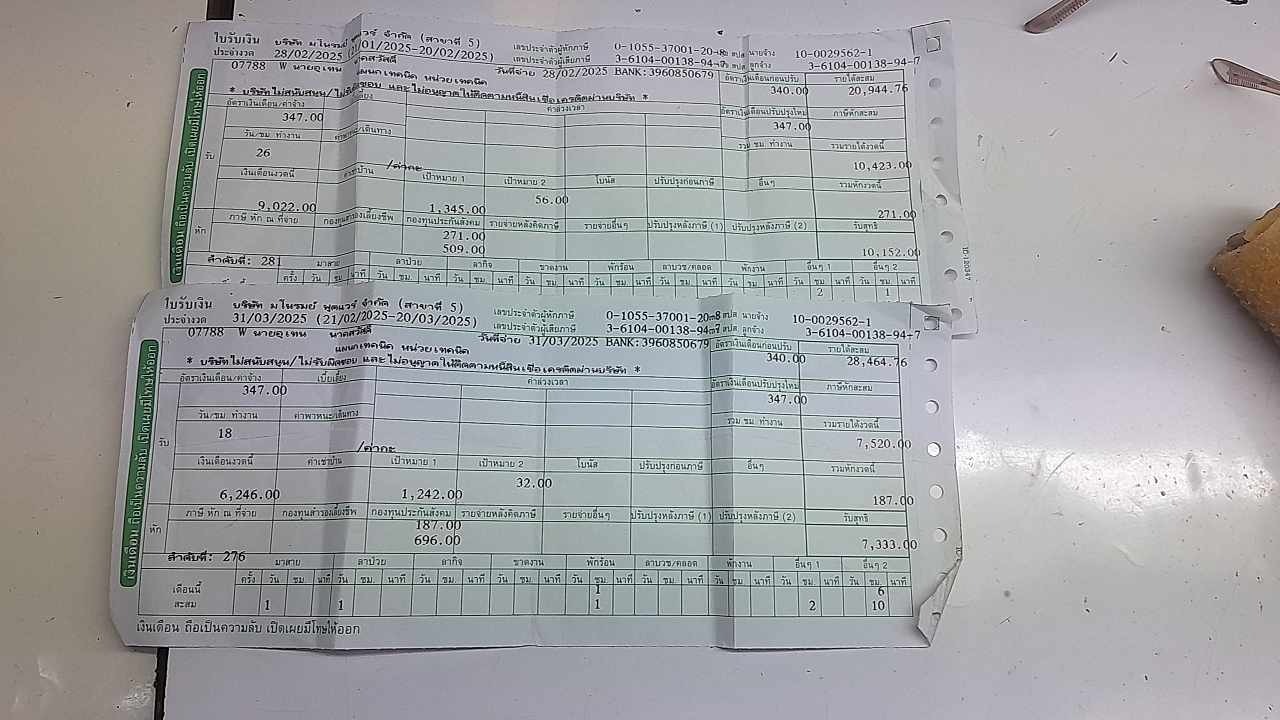 ใบรับเงิน บริษัท มโนรมย์ จำกัด (สาขาที่ 5) เลขประจำตัวผู้หักภาษี 0-1055-37001-20- นายจ้าง 10-0029562-1
ประจำงวด 28/02/2025 /01/2025-20/02/2025) เลขประจำตัวผู้เสียภาษี 3-6104-00138-94-7 ลูกจ้าง 3-6104-00138-94-7
07788 W นายอุเทน สวัสดิ์ วันที่จ่าย 28/02/2025 BANK:3960850679 อัตราเงินเดือนก่อนปรับ รายได้สะสม
แผนกเทคนิค หน่วยเทคนิค 340.00 20,944.76
* บริษัทไม่สนับสนุน/ และไม่อนุญาตให้ติดตามหนี้สินเชื่อเครดิตผ่านบริษัท *
อัตราเงินเดือน/ค่าจ้าง ค่าล่วงเวลา อัตราเงินเดือนปรับปรุงใหม่ ภาษีหักสะสม
347.00 347.00
วัน/ชม. ทำงาน รวม ชม. ทำงาน รวมรายได้งวดนี้
รับ 26 10,423.00
/ค่ากะ
เงินเดือนงวดนี้ ค่าเช่าบ้าน เป้าหมาย 1 เป้าหมาย 2 โบนัส ปรับปรุงก่อนภาษี อื่นๆ รวมหักงวดนี้
9,022.00 1,345.00 56.00 271.00
ภาษี หัก ณ ที่จ่าย กองทุนสำรองเลี้ยงชีพ กองทุนประกันสังคม รายจ่ายหลังคิดภาษี รายจ่ายอื่นๆ ปรับปรุงหลังภาษี (1) ปรับปรุงหลังภาษี (2) รับสุทธิ
หัก 271.00
509.00 10,152.00
ลำดับที่: 281 มาสาย ลาป่วย ลากิจ ขาดงาน พักร้อน ลาบวช/คลอด พักงาน อื่นๆ 1 อื่นๆ 2
ครั้ง วัน ชม. นาที วัน ชม. นาที วัน ชม. นาที วัน ชม. นาที วัน ชม. นาที วัน ชม. นาที วัน ชม. นาที วัน ชม. นาที วัน ชม. นาที
2 1
เงินเดือน ถือเป็นความลับ เปิดเผยมีโทษไล่ออก
ใบรับเงิน บริษัท มโนรมย์ ฟูดแวร์ จำกัด (สาขาที่ 5) เลขประจำตัวผู้หักภาษี 0-1055-37001-20- นายจ้าง 10-0029562-1
ประจำงวด 31/03/2025 (21/02/2025-20/03/2025) เลขประจำตัวผู้เสียภาษี 3-6104-00138-94-7 ลูกจ้าง 3-6104-00138-94-7
07788 W นายอุเทน นาคสวัสดิ์ วันที่จ่าย 31/03/2025 BANK:3960850679 อัตราเงินเดือนก่อนปรับ รายได้สะสม
แผนกเทคนิค หน่วยเทคนิค 340.00 28,464.76
* บริษัทไม่สนับสนุน/ไม่รับผิดชอบ และไม่อนุญาตให้ติดตามหนี้สินเชื่อเครดิตผ่านบริษัท *
อัตราเงินเดือน/ค่าจ้าง เบี้ยเลี้ยง ค่าล่วงเวลา อัตราเงินเดือนปรับปรุงใหม่ ภาษีหักสะสม
347.00 347.00
วัน/ชม. ทำงาน ค่าพาหนะ/เดินทาง รวม ชม. ทำงาน รวมรายได้งวดนี้
รับ 18 7,520.00
/ค่ากะ
เงินเดือนงวดนี้ ค่าเช่าบ้าน เป้าหมาย 1 เป้าหมาย 2 โบนัส ปรับปรุงก่อนภาษี อื่นๆ รวมหักงวดนี้
6,246.00 1,242.00 32.00 187.00
ภาษี หัก ณ ที่จ่าย กองทุนสำรองเลี้ยงชีพ กองทุนประกันสังคม รายจ่ายหลังคิดภาษี รายจ่ายอื่นๆ ปรับปรุงหลังภาษี (1) ปรับปรุงหลังภาษี (2) รับสุทธิ
หัก 187.00
696.00 7,333.00
ลำดับที่: 276 มาสาย ลาป่วย ลากิจ ขาดงาน พักร้อน ลาบวช/คลอด พักงาน อื่นๆ 1 อื่นๆ 2
ครั้ง วัน ชม. นาที วัน ชม. นาที วัน ชม. นาที วัน ชม. นาที วัน ชม. นาที วัน ชม. นาที วัน ชม. นาที วัน ชม. นาที วัน ชม. นาที
เดือนนี้ 1 6
สะสม 1 1 1 2 10
เงินเดือน ถือเป็นความลับ เปิดเผยมีโทษให้ออก
เงินเดือน ถือเป็นความลับ เปิดเผยมีโทษให้ออก